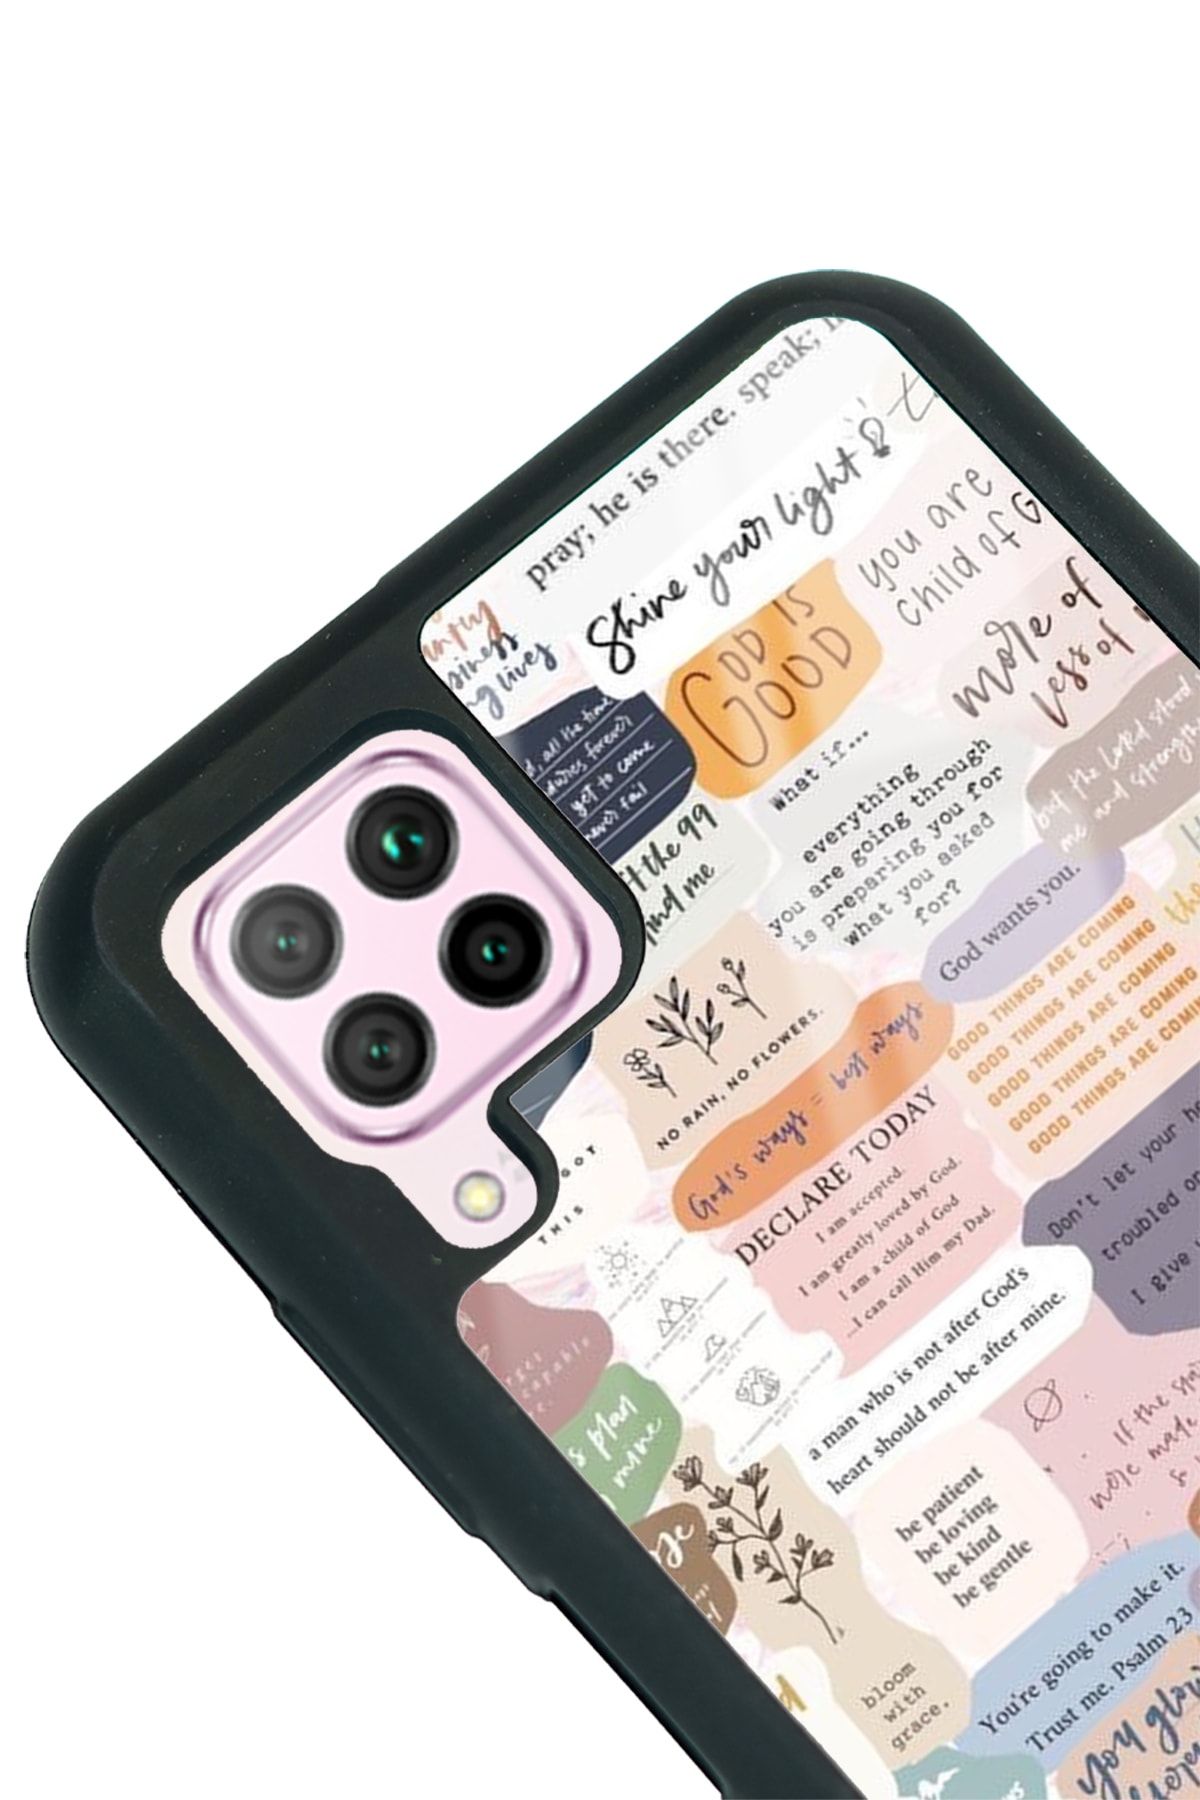 pray; he is there. speak;
Shine your light
you are
child of G
GOD IS
GOOD
more of
less of
ng lives
all the time
forever
yet to come
never fail
the 99
find me
What if...
everything
you are going through
is preparing you for
what you asked
for?
but the LORD stood
me and strength
God wants you.
GOOD THINGS ARE COMING
GOOD THINGS ARE COMING
GOOD THINGS ARE COMING
GOOD THINGS ARE COMING
GOOD THINGS ARE COM
NO RAIN, NO FLOWERS.
God's ways = best ways
DECLARE TODAY
I am accepted.
I am greatly loved by God.
I am a child of God
...I can call Him my Dad.
GOT
THIS
Don't let your h
troubled or
I give
a man who is not after God's
heart should not be after mine.
If the sta
were made
plan
mine
be patient
be loving
be kind
be gentle
bloom
with
grace.
You're going to make it.
Trust me. Psalm 23
you